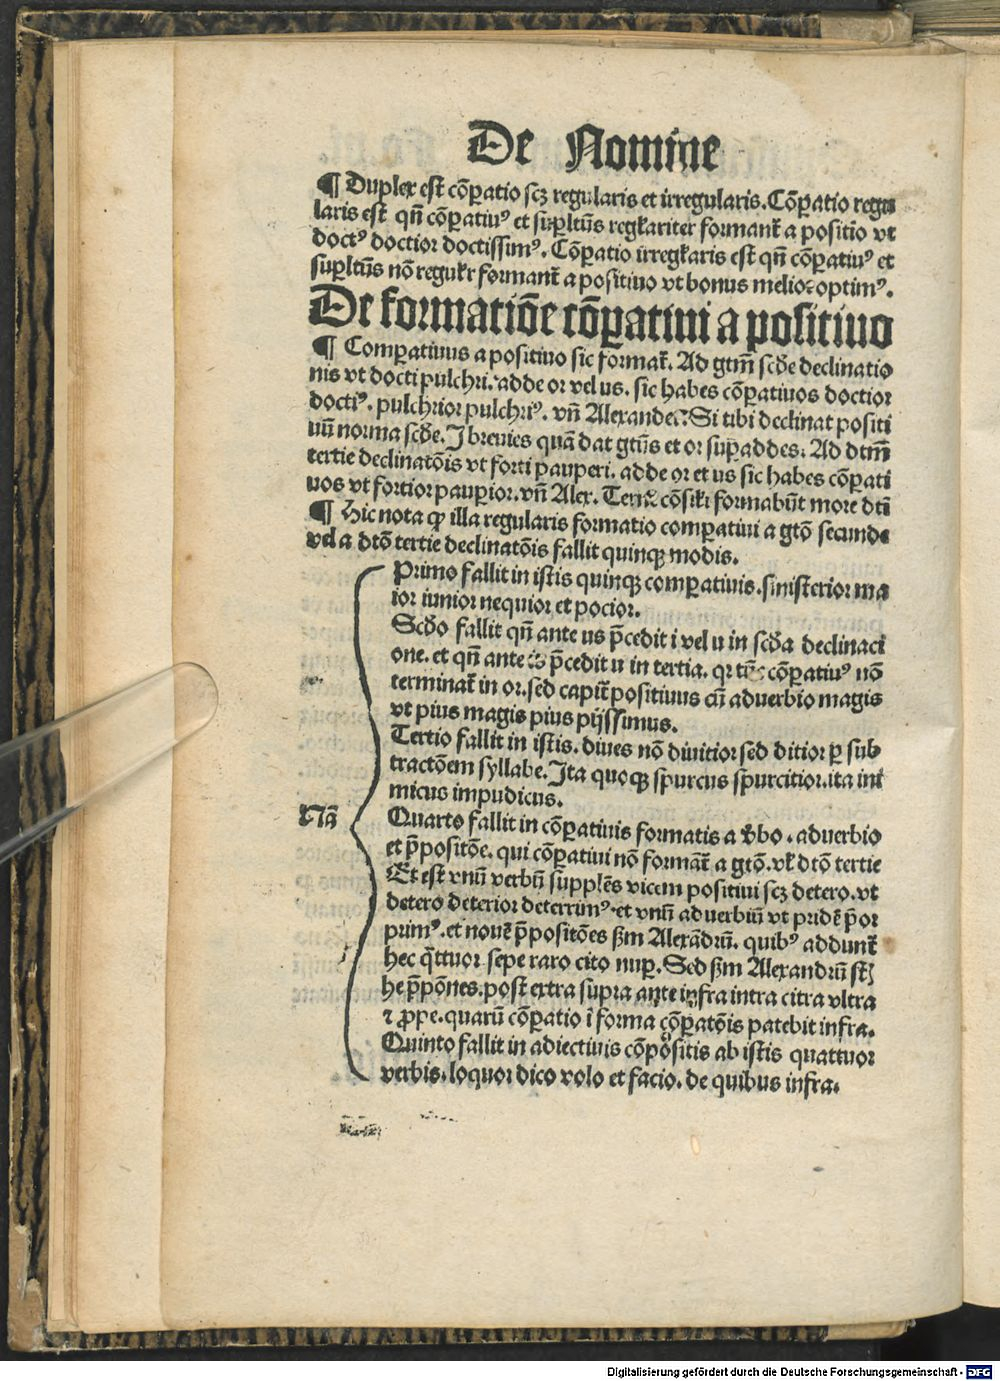 De Nomine
¶ Duplex est cõꝑatio scꝫ regularis et irregularis. Cõꝑatio regu
laris est qñ cõꝑatiuꝰ et suꝑltiũs regłariter formant̃ a positio vt
doctꝰ doctior doctissimꝰ. Cõꝑatio irregłaris est qñ cõꝑatiuꝰ et
suꝑltiũs nõ regulr̃ formant̃ a positiuo vt bonus melior optimꝰ.
De formatiõe cõꝑatiui a positiuo
¶ Comꝑatiuus a positiuo sic format̃. Ad gtm̃ scd̃e declinatio
nis vt docti pulchri. adde or vel us. sic habes cõꝑatiuos doctior
doctiꝰ. pulchrior pulchriꝰ. vñ Alexander. Si tibi declinat positi
uũ norma scd̃e. I breuies quã dat gtũs et or suꝑaddes. Ad dtm̃
tertie declinatõis vt forti pauperi. adde or et us sic habes cõꝑati
uos vt fortior pauꝑior. vñ Alex. cõsiłi formabũt more dti
¶ Hic nota ꝙ illa regularis formatio comꝑatiui a gtõ secunde
vel a dtõ tertie declinatõis fallit quinqꝫ modis.
Primo fallit in istis quinqꝫ comꝑatiuis. sinisterior ma
ior iunior nequior et pocior.
Scd̃o fallit qñ ante us p̃cedit i vel u in scd̃a declinaci
one. et qñ ante is p̃cedit u in tertia. qr cõꝑatiuꝰ nõ
terminat̃ in or. sed capit̃ positiuus cũ aduerbio magis
vt pius magis pius pijssimus.
Tertio fallit in istis. diues nõ diuitior sed ditior ꝑ sub
tractõem syllabe. Ita quoqꝫ spurcus spurcitior. ita ini
micus impudicus.
Nã
Quarto fallit in cõꝑatiuis formatis a v̉bo. aduerbio
et p̃positõe. qui cõꝑatiui nõ formãt̃ a gtõ. vł dtõ tertie
Et est vnũ verbũ supplẽs vicem positiui scꝫ detero. vt
detero deterior deterrimꝰ. et vnũ aduerbiũ vt pridẽ p̃or
primꝰ. et nouẽ p̃positões ẞm Alexãdrũ. quibꝰ addunt̃
hec q̃ttuor sepe raro cito nuꝑ. Sed ẞm Alexandrũ st̃
he p̃põnes. post extra supra ante infra intra citra vltra
⁊ ꝓpe. quarũ cõꝑatio ĩ forma cõꝑatõis patebit infra.
Quinto fallit in adiectiuis cõpositis ab istis quattuor
verbis. loquor dico volo et facio. de quibus infra.
Digitalisierung gefördert durch die Deutsche Forschungsgemeinschaft - DFG